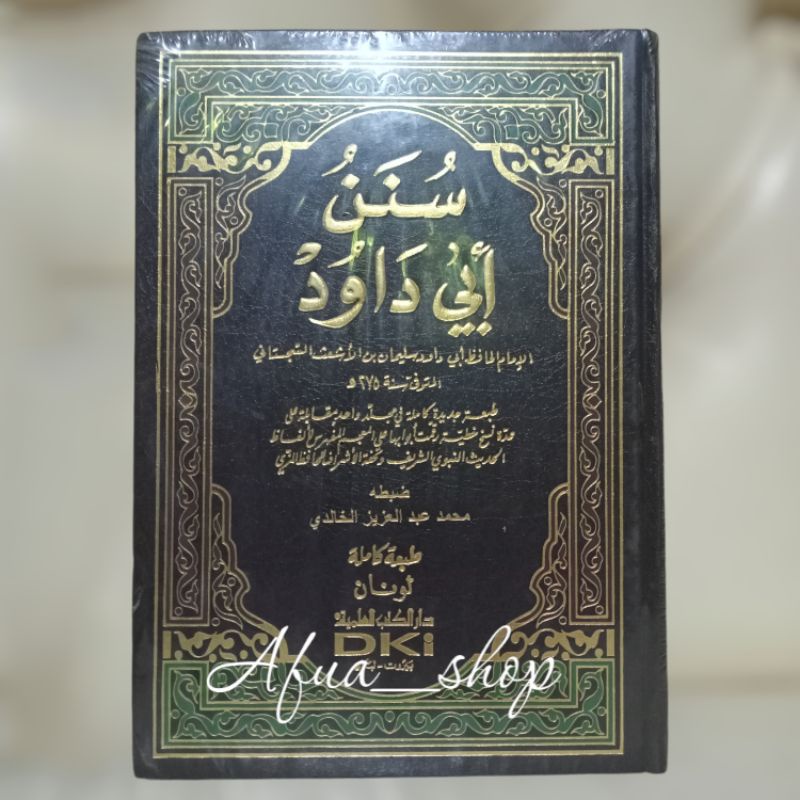 سُنَنُ
أَبِي دَاوُدْ
الإمام الحافظ أبي داود سليمان بن الأشعث السجستاني
المتوفى سنة ٢٧٥ هـ
طبعة جديدة كاملة في مجلد واحد مقابلة على
عدة نسخ خطية رقمت أبوابها على المعجم المفهرس لألفاظ
الحديث النبوي الشريف وتحفة الأشراف للحافظ المزي
ضبطه
محمد عبد العزيز الخالدي
طبعة كاملة
لونان
دار الكتب العلمية
DKi
بيروت - لبنان
Afua_shop